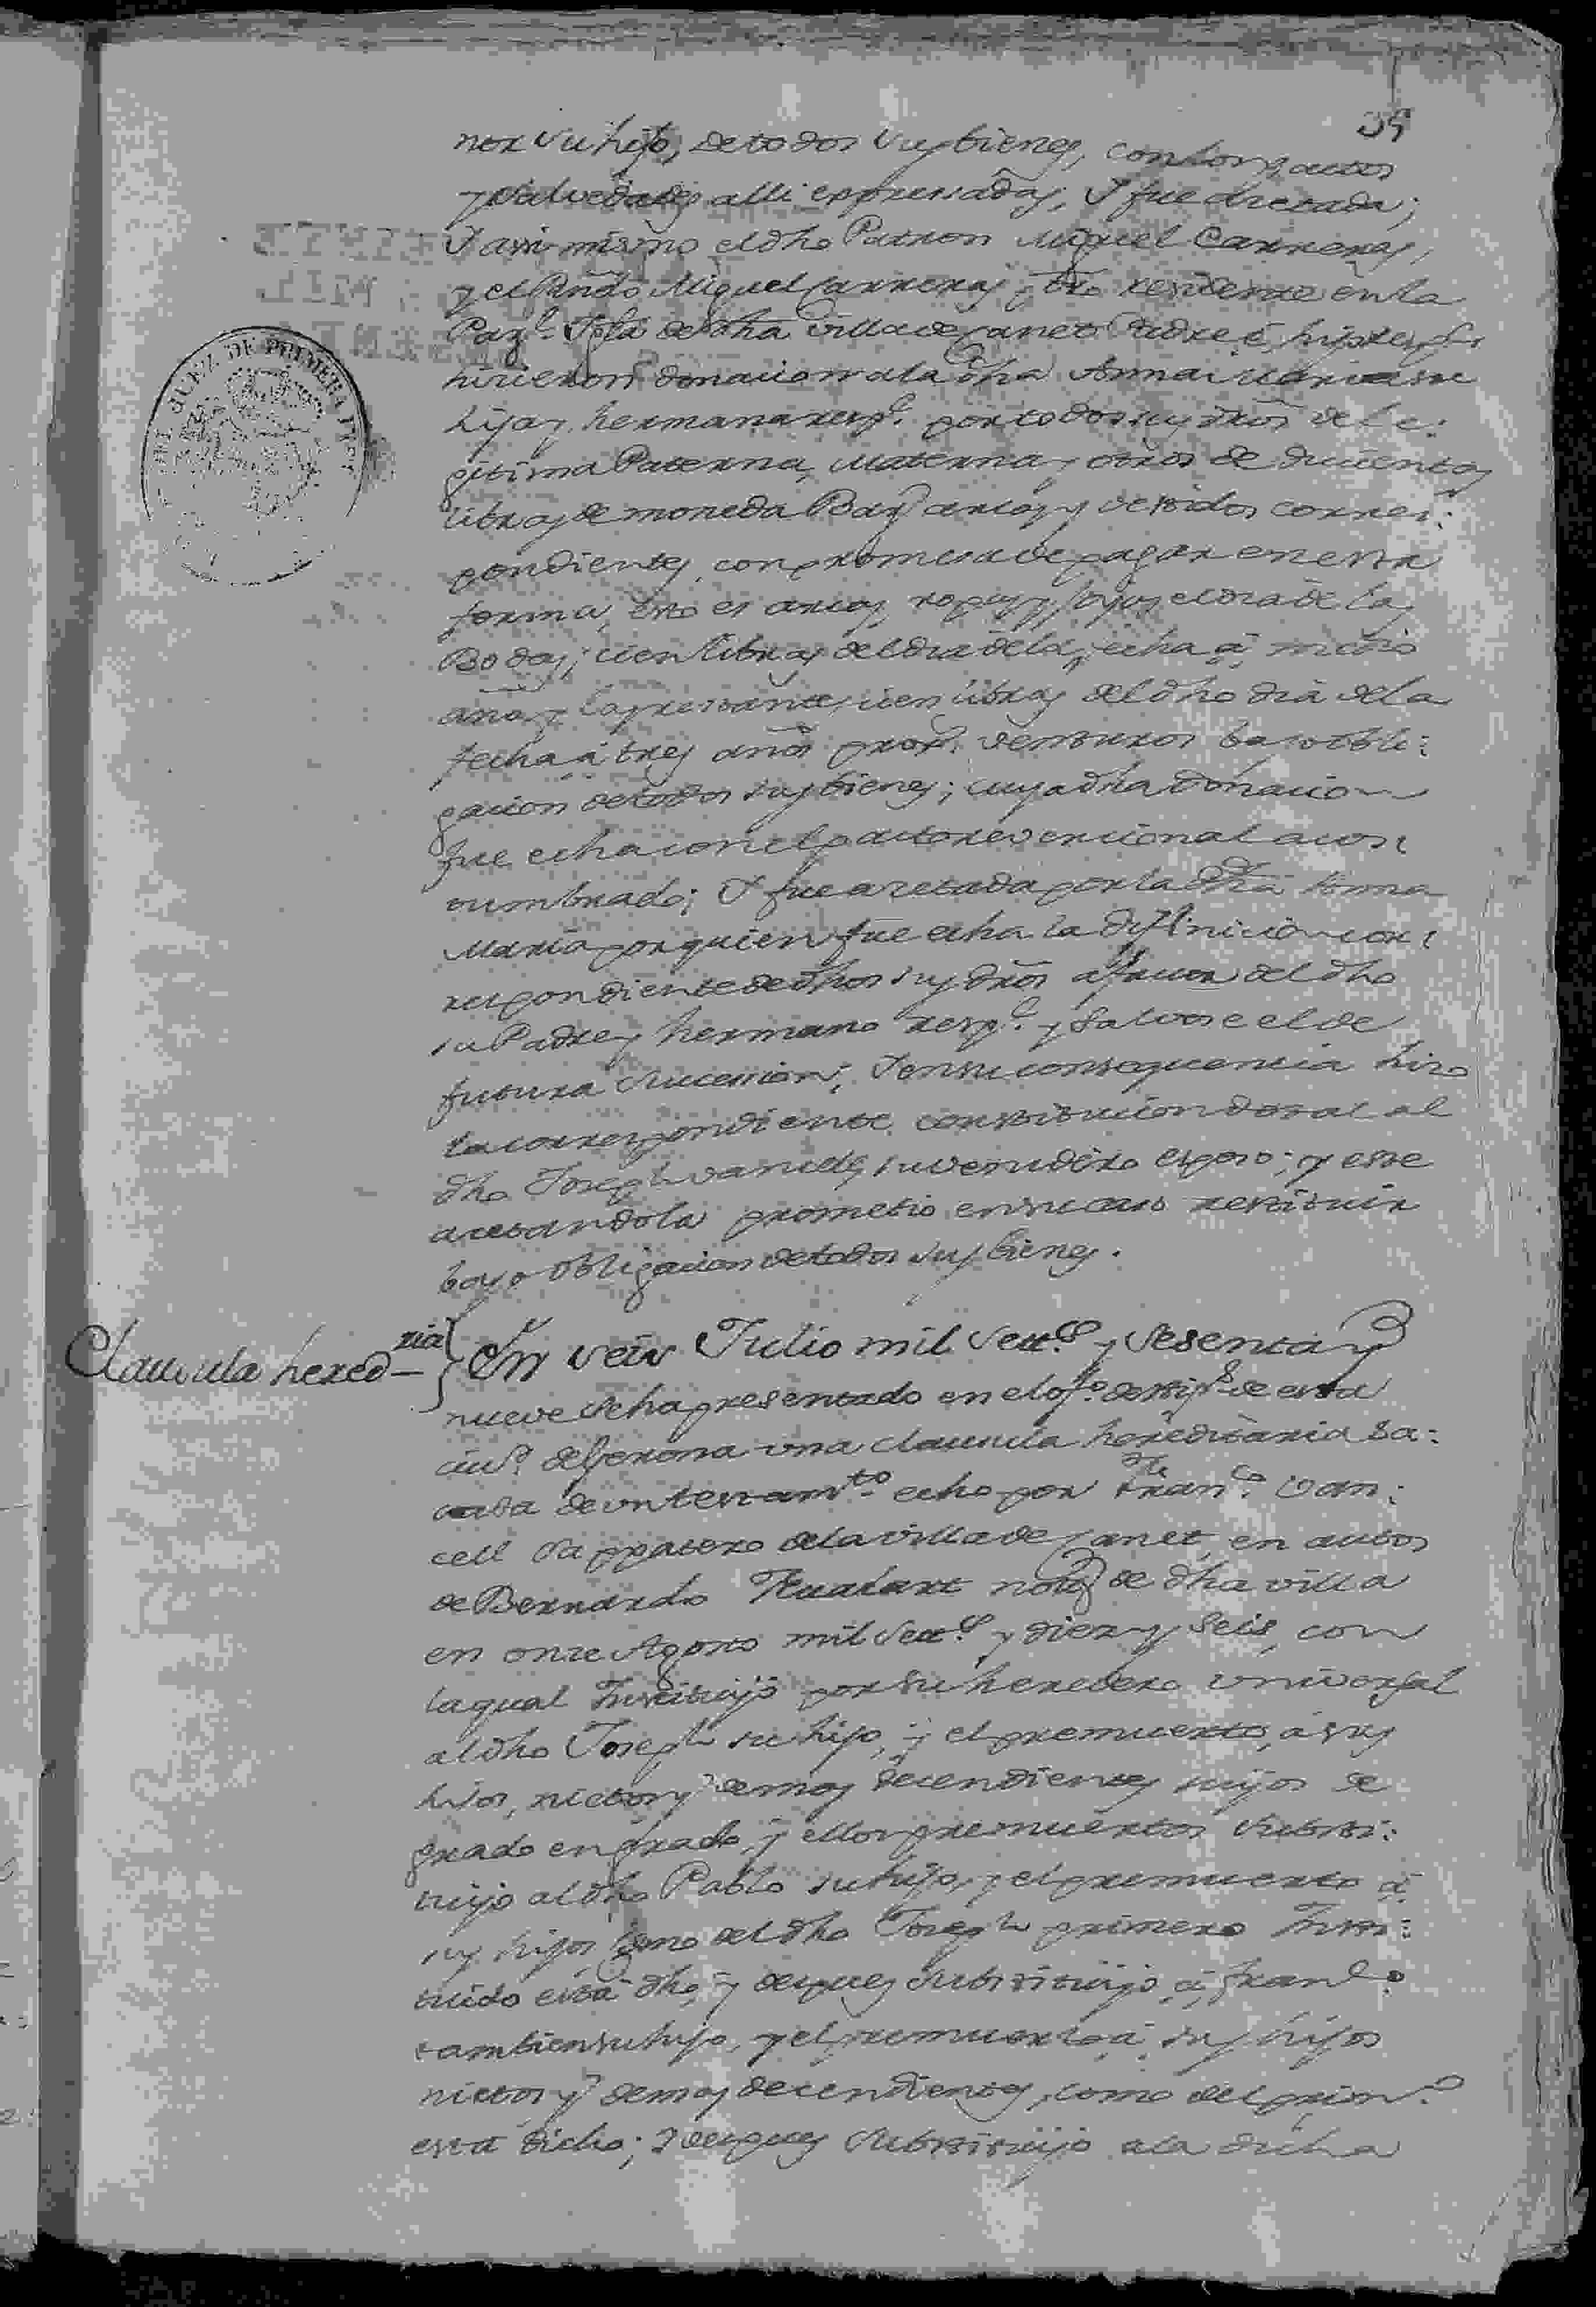 39
nor su hijo, de todos sus bienes, con los pactos
y salvedades alli expressadas, Y fue acceptada;
Y assi mismo el dho Patron Miguel Carreras,
y el Miguel Carreras, residente en la
Igla de dha villa de Canet Padre é hijo
hizieron donacion a la dha Anna Maria su
hija y hermana resp.e por todos sus dros de le:
gitima Paterna, Materna y otros de ducientas
libras de moneda Barz arcas y vestidos corres:
pondientes, con promesa de pagar en esta
forma, esto es arcas, ropas y joyas el dia de las
Bodas; cien libras del dia de la fecha á medio
año, y las restantes cien libras del dho dia de la
fecha á tres años prox. venturos baxo obli:
gacion de todos sus bienes; cuya dha donacion
fue echa con el pacto revercional acos:
tumbrado; Y fue acetada por la dha Anna
Maria por quien fue echa la difinicion cor:
respondiente de dhos sus dros á favor del dho
su Padre y hermano resp.e y salvose el de
futura succession; Y en su consequencia hizo
la correspondiente constitucion dotal al
dho Joseph vancells su venidero esposo; y este
acetandola prometio en su caso restituir
baxo obligacion de todos sus bienes.
Clausula hered-ria} En seis Julio mil sett.s y sesenta y
nueve se ha presentado en el of.o de hip.s de esta
ciud. de Gerona una clausula hereditaria sa:
cada de un testam.to echo por Fran.co Van:
cell sappatero de la villa de Canet, en autos
de Bernardo not.o de dha villa
en onze Agosto mil sett.s y diez y seis, con
la qual Instituyó por su heredero universal
al dho Joseph su hijo, y el premuerto, á sus
hijos, nietos y demas decendientes suyos de
grado en grado, y ellos premuertos substi:
tuyó al dho Pablo su hijo, y el premuerto á
sus hijos como del dho Joseph primero Insti:
tuido está dho, y despues substituyó á Fran.co
tambien su hijo, y el premuerto á sus hijos
nietos y demas decendientes, como del prim.o
está dicho; Y despues substituyó a la dicha
JUEZ DE PRIMERA